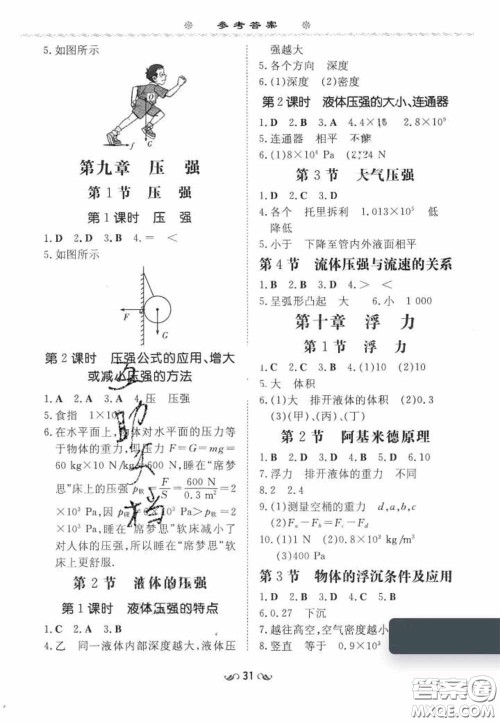 参考答案
5.如图所示
第九章 压 强
第1节 压 强
第1课时 压 强
1.D 2.D 3.B 4.= <
5.如图所示
第2课时 压强公式的应用、增大
或减小压强的方法
1.D 2.C 3.A 4.压 压强
5.食指 1×10
6.在水平面上,物体对水平面的压力等
于物体的重力,即压力F=G=mg=
60 kg×10 N/kg=600 N,睡在“席梦
思”床上的压强p软=F/S=600 N/0.3 m²=2
×10³ Pa,因p硬
×10³ Pa,睡在“席梦思”软床减小了
对人体的压强,所以睡在“席梦思”软
床上更舒服.
第2节 液体的压强
第1课时 液体压强的特点
1.D 2.C 3.A
4.乙 同一液体内部深度越大,液体压
强越大
5.各个方向 深度
6.(1)深度 (2)密度
第2课时 液体压强的大小、连通器
1.D 2.B 3.A 4.4× 2.8×10³
5.连通器 相平 不能
6.(1)8×10⁴ Pa (2)24 Pa
第3节 大气压强
1.D 2.C 3.D
4.各个 托里拆利 1.013×10⁵ 低
降低
5.小于 下降至管内外液面相平
第4节 流体压强与流速的关系
1.D 2.A 3.B 4.> >
5.呈弧形凸起 大 6.小 1 000
第十章 浮 力
第1节 浮 力
1.D 2.C 3.A 4.(1)10 (2)10
5.大 体积
6.(1)大 排开液体的体积 (2)0.3
(3)(甲)、(丙)、(丁)
第2节 阿基米德原理
1.D 2.A 3.B 4.D 5.D 6.D
7.浮力 排开液体的重力 不同
8.2 2.4
9.(1)测量空桶的重力 d,a,b,c
(2)F
10.(1)1 N (2)0.8×10³ kg/m³
(3)400 Pa
第3节 物体的浮沉条件及应用
1.D 2.C 3.D 4.D 5.B
6.0.27 下沉
7.越往高空,空气密度越小
8.竖直 等于 0.9×10
31
互助文档
答案圈